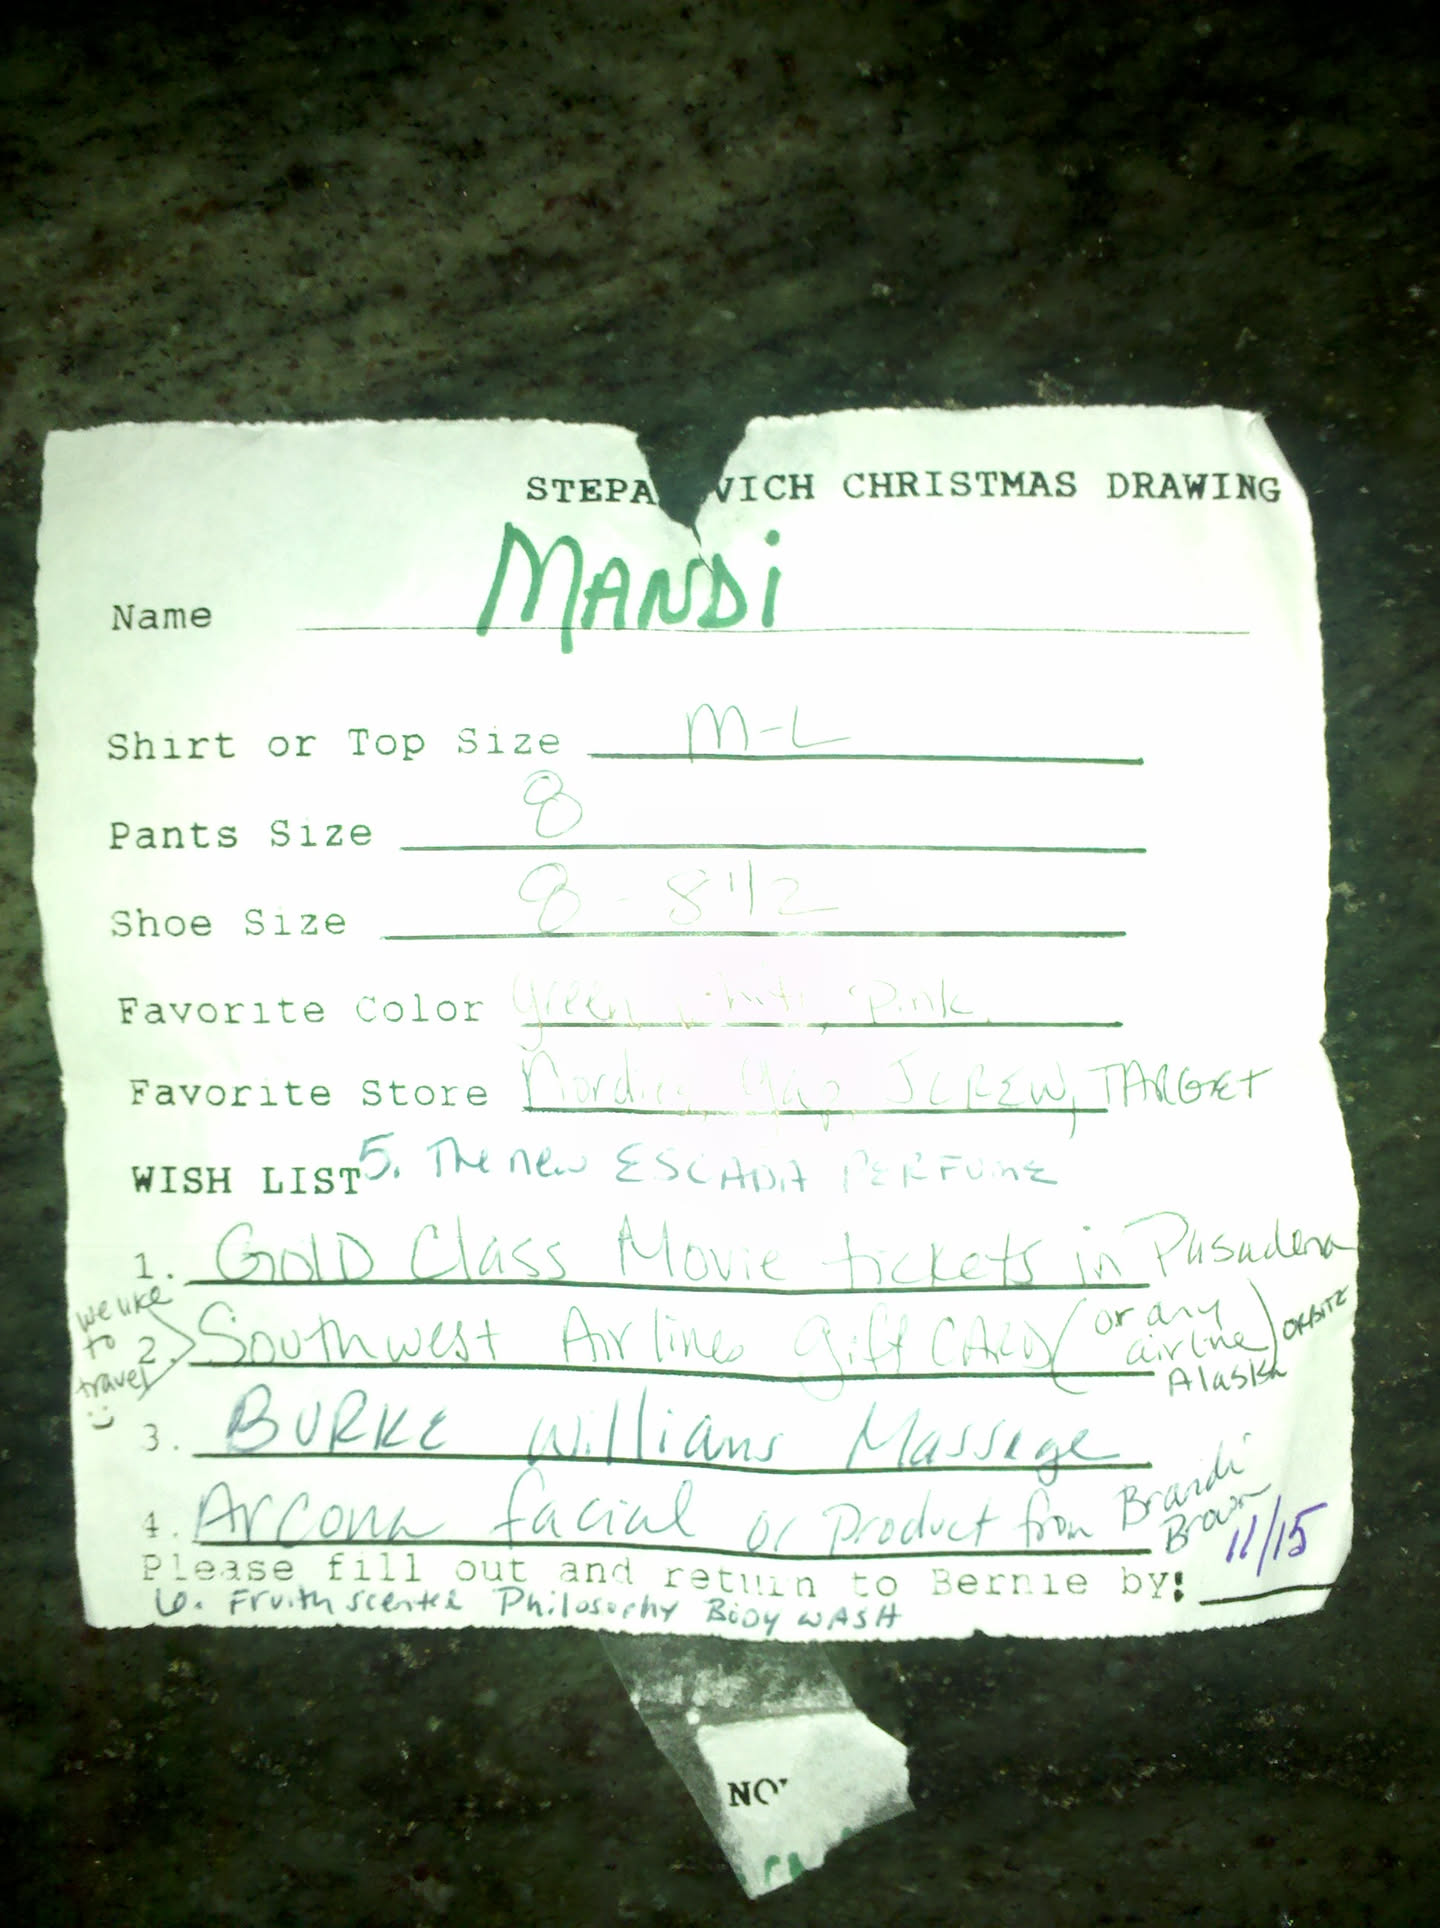 STEPA VICH CHRISTMAS DRAWING
Name MANDi
Shirt or Top Size M-L
Pants Size 8
Shoe Size 8 - 8 1/2
Favorite Color green, white, pink
Favorite Store Nordies, gap, JCREW, TARGET
WISH LIST 5. The new ESCADA PERFUME
1. GOLD Class Movie tickets in Pasadena
we like to travel :)
2. Southwest Airlines gift CARD (or any airline) ORBITZ
Alaska
3. BURKE Williams Massage
4. Arcona facial or product from Brandi Brown
Please fill out and return to Bernie by: 11/15
6. Fruith scented Philosophy BODY WASH
NO